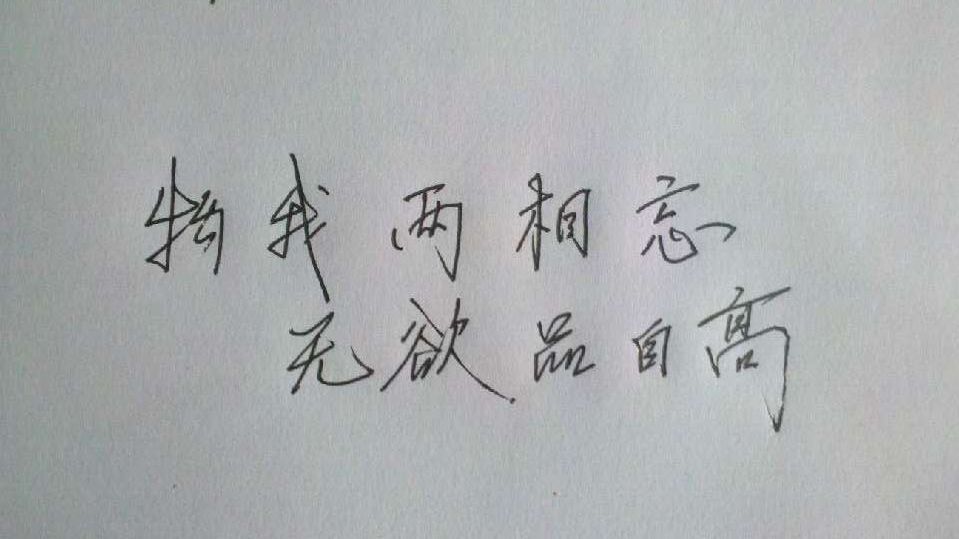 物我两相忘
无欲品自高